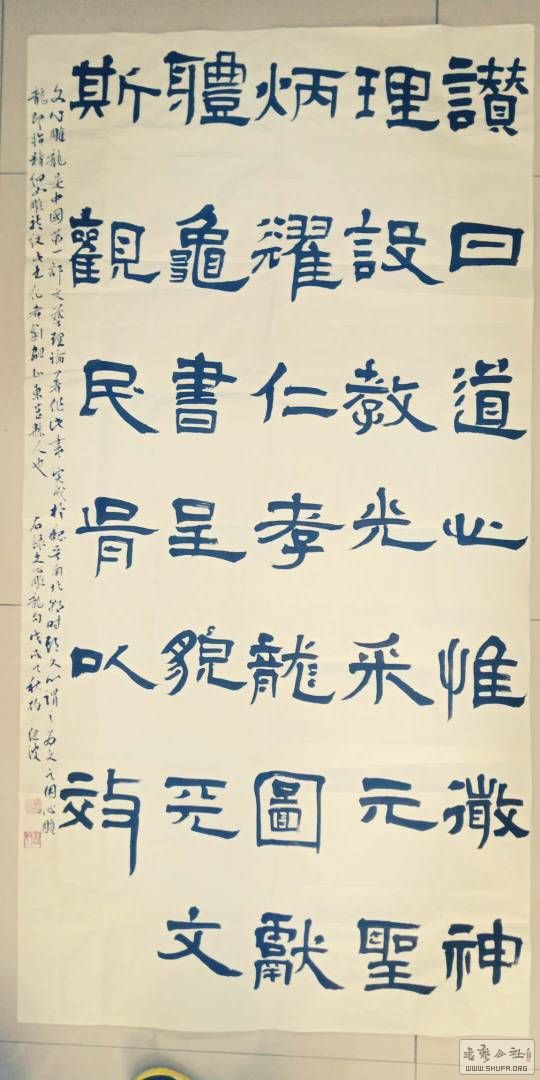 讚曰道心惟微神
理設教光采元聖
炳燿仁孝龍圖獻
體龜書呈貌天文
斯觀民胥以效
文心雕龍是中國第一部文藝理論著作此書完成於魏晉南北朝時期文心謂之為文之用心雕
龍即指精細如雕此書作者劉勰山東莒縣人也 右錄文心雕龍句戊戌之秋
书艺公社
WWW.SHUFA.ORG